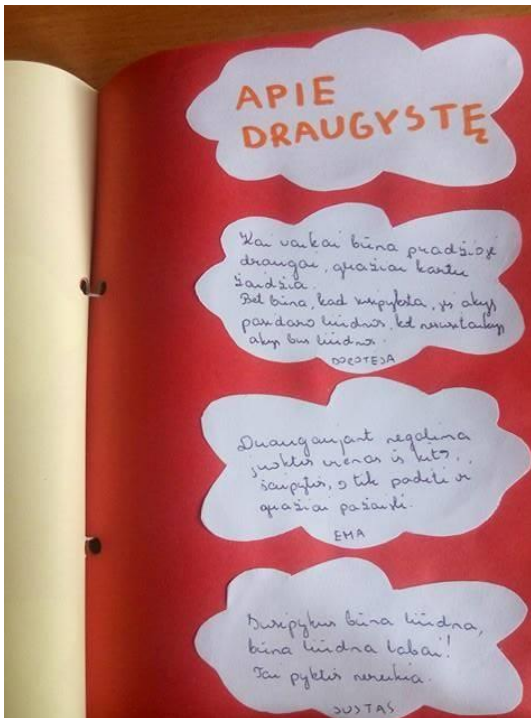 APIE
DRAUGYSTĘ
Kai vaikai būna pradžioj
draugai, gražiai kartu
žaidžia.
Bet būna, kad susipyksta, jų akys
pasidaro liūdnos, kol nesusitaikys
akys bus liūdnos.
DOROTĖJA
Draugaujant negalima
juoktis vienas iš kito,
šaipytis, o tik padėti ir
gražiai pažaisti.
EMA
Susipykus būna liūdna,
būna liūdna labai!
Tai pyktis nereikia.
JUSTAS